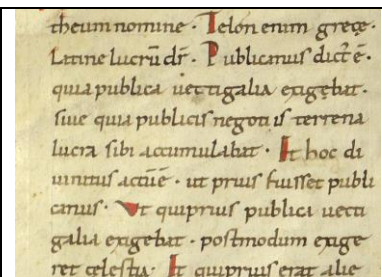 theum nomine · Telon enim grece·
Latine lucrũ dr̃ · Publicanus dict ẽ·
quia publica uectigalia exigebat·
siue quia publicis negotiis terrena
lucra sibi accumulabat · Et hoc di
uinitus actũ ẽ · ut prius fuisset publi
canus · Vt qui prius publica uecti
galia exigebat · postmodum exige
ret celestia· Et qui prius erat alie